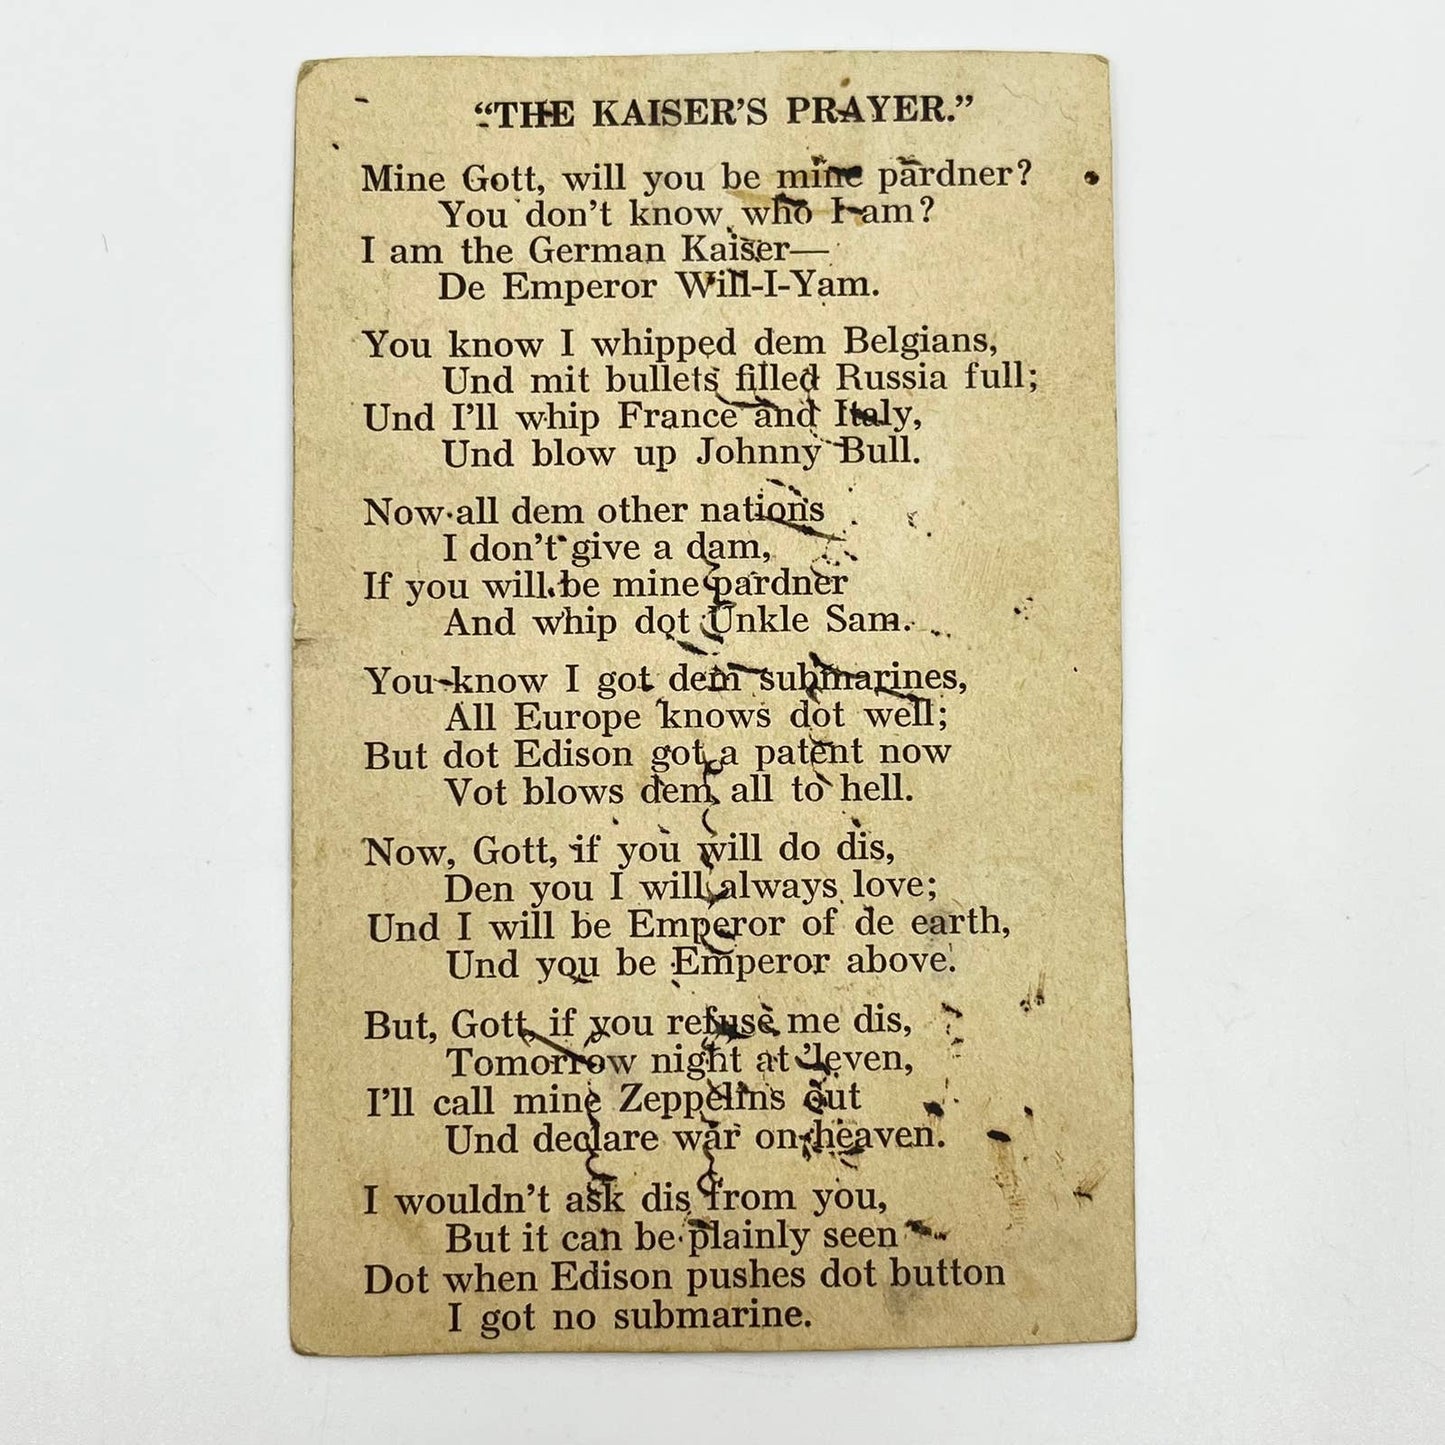 “THE KAISER’S PRAYER.”
Mine Gott, will you be mine pardner?
You don’t know who I am?
I am the German Kaiser—
De Emperor Will-I-Yam.
You know I whipped dem Belgians,
Und mit bullets filled Russia full;
Und I’ll whip France and Italy,
Und blow up Johnny Bull.
Now all dem other nations
I don’t give a dam,
If you will be mine pardner
And whip dot Unkle Sam.
You know I got dem submarines,
All Europe knows dot well;
But dot Edison got a patent now
Vot blows dem all to hell.
Now, Gott, if you will do dis,
Den you I will always love;
Und I will be Emperor of de earth,
Und you be Emperor above.
But, Gott, if you refuse me dis,
Tomorrow night at ’leven,
I’ll call mine Zeppelins out
Und declare war on heaven.
I wouldn’t ask dis from you,
But it can be plainly seen
Dot when Edison pushes dot button
I got no submarine.